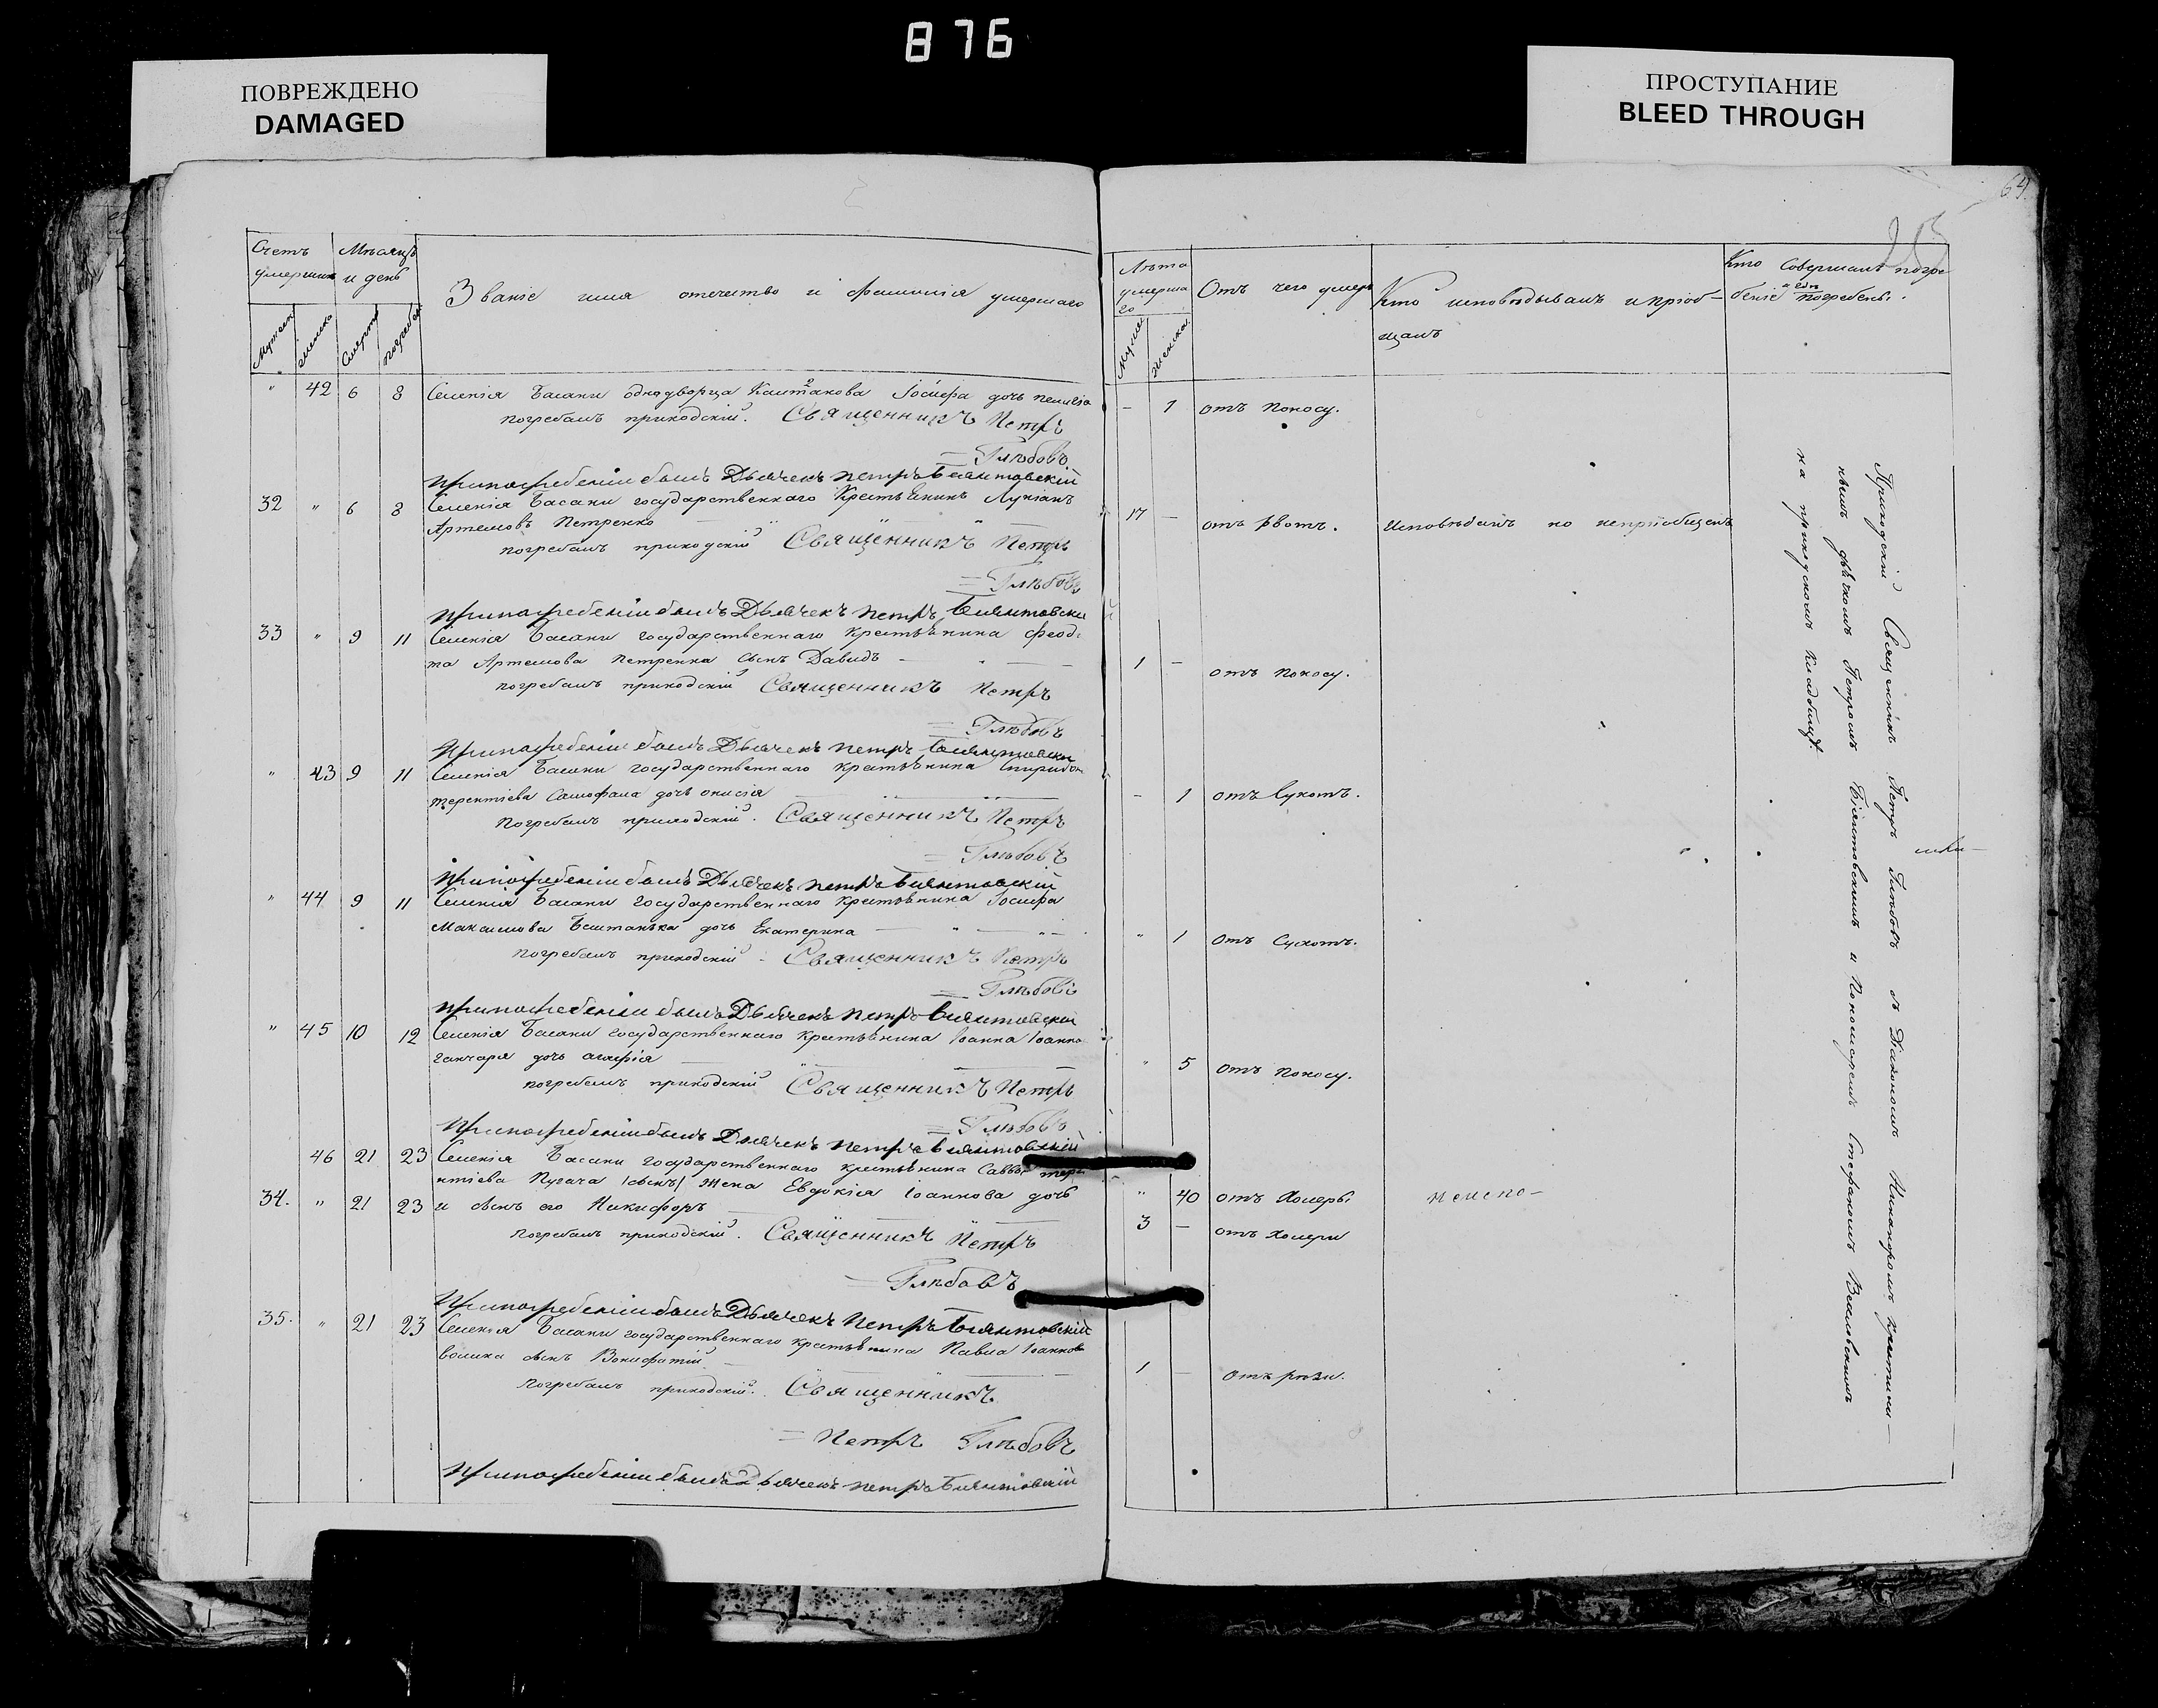 876
ПОВРЕЖДЕНО
DAMAGED
ПРОСТУПАНИЕ
BLEED THROUGH
64
Счетъ умершихъ
Мѣсяцъ и день
Званіе имя отечество и фамилія умершаго
Мужеск
женска
Смерти
погребен
" 42 6 8 Селенія Басани однодворца Іосифа дочь
погребалъ приходскій. Священникъ Петръ
= Глѣбовъ
при погребеніи былъ Дьячекъ Петръ Біянтовскій
32 " 6 8 Селенія Басани государственнаго Крестьянинъ Лукіанъ
Артемовъ Петренко
погребалъ приходскій Священникъ Петръ
= Глѣбовъ
при погребеніи былъ Дьячекъ Петръ Біянтовскі
33 " 9 11 Селенія Басани государственнаго крестьянина Феодо
та Артемова Петренка сынъ Давидъ
погребалъ приходскій Священникъ Петръ
= Глѣбовъ
при погребеніи былъ Дьячекъ Петръ Біянтовскі
" 43 9 11 Селенія Басани государственнаго крестьянина Спиридон
терентіева дочь
погребалъ приходскій. Священникъ Петръ
= Глѣбовъ
при погребеніи былъ Дьячекъ Петръ Біянтовскій
" 44 9 11 Селенія Басани государственнаго крестьянина Іосифа
Максимова дочь Екатерина
погребалъ приходскій - Священникъ Петръ
= Глѣбовъ
при погребеніи былъ Дьячекъ Петръ Біянтовскій
" 45 10 12 Селенія Басани государственнаго крестьянина Іоанна Іоанно
ганчаря дочь агафія
погребалъ приходскій Священникъ Петръ
= Глѣбовъ
при погребеніи былъ Дьячекъ Петръ Біянтовскій
46 21 23 Селенія Басани государственнаго крестьянина Саввы тере
нтіева Пугача Жена Евдокія Іоаннова дочь
34. " 21 23 и сынъ его Никифоръ
погребалъ приходскій. Священникъ Петръ
= Глѣбовъ
при погребеніи былъ Дьячекъ Петръ Біянтовскій
35. " 21 23 Селенія Басани государственнаго крестьянина Павла Іоаннова
волика сынъ Вонифатій
погребалъ приходскій. Священникъ
= Петръ Глѣбовъ
при погребеніи былъ Дьячекъ Петръ Біянтовскій
Лѣта умерша го
Отъ чего умеръ
Кто исповѣдывалъ и пріоб-
щалъ
Кто Совершалъ погре
беніе и гдѣ погребены.
Мужес
Женска
- 1 отъ поносу.
17 - отъ рвотъ. Исповѣданъ но непріобщенъ
1 - отъ поносу.
- 1 отъ Сухотъ.
" 1 отъ Сухотъ.
" 5 отъ поносу.
" 40 отъ Холеры неиспо-
3 - отъ Холеры
1 - отъ рѣзи.
Приходскій Священникъ Петръ Глѣбовъ съ Діакономъ
дьячкомъ Петромъ Біянтовскимъ и Пономаремъ Стефаномъ
на приходскомъ кладбищѣ.